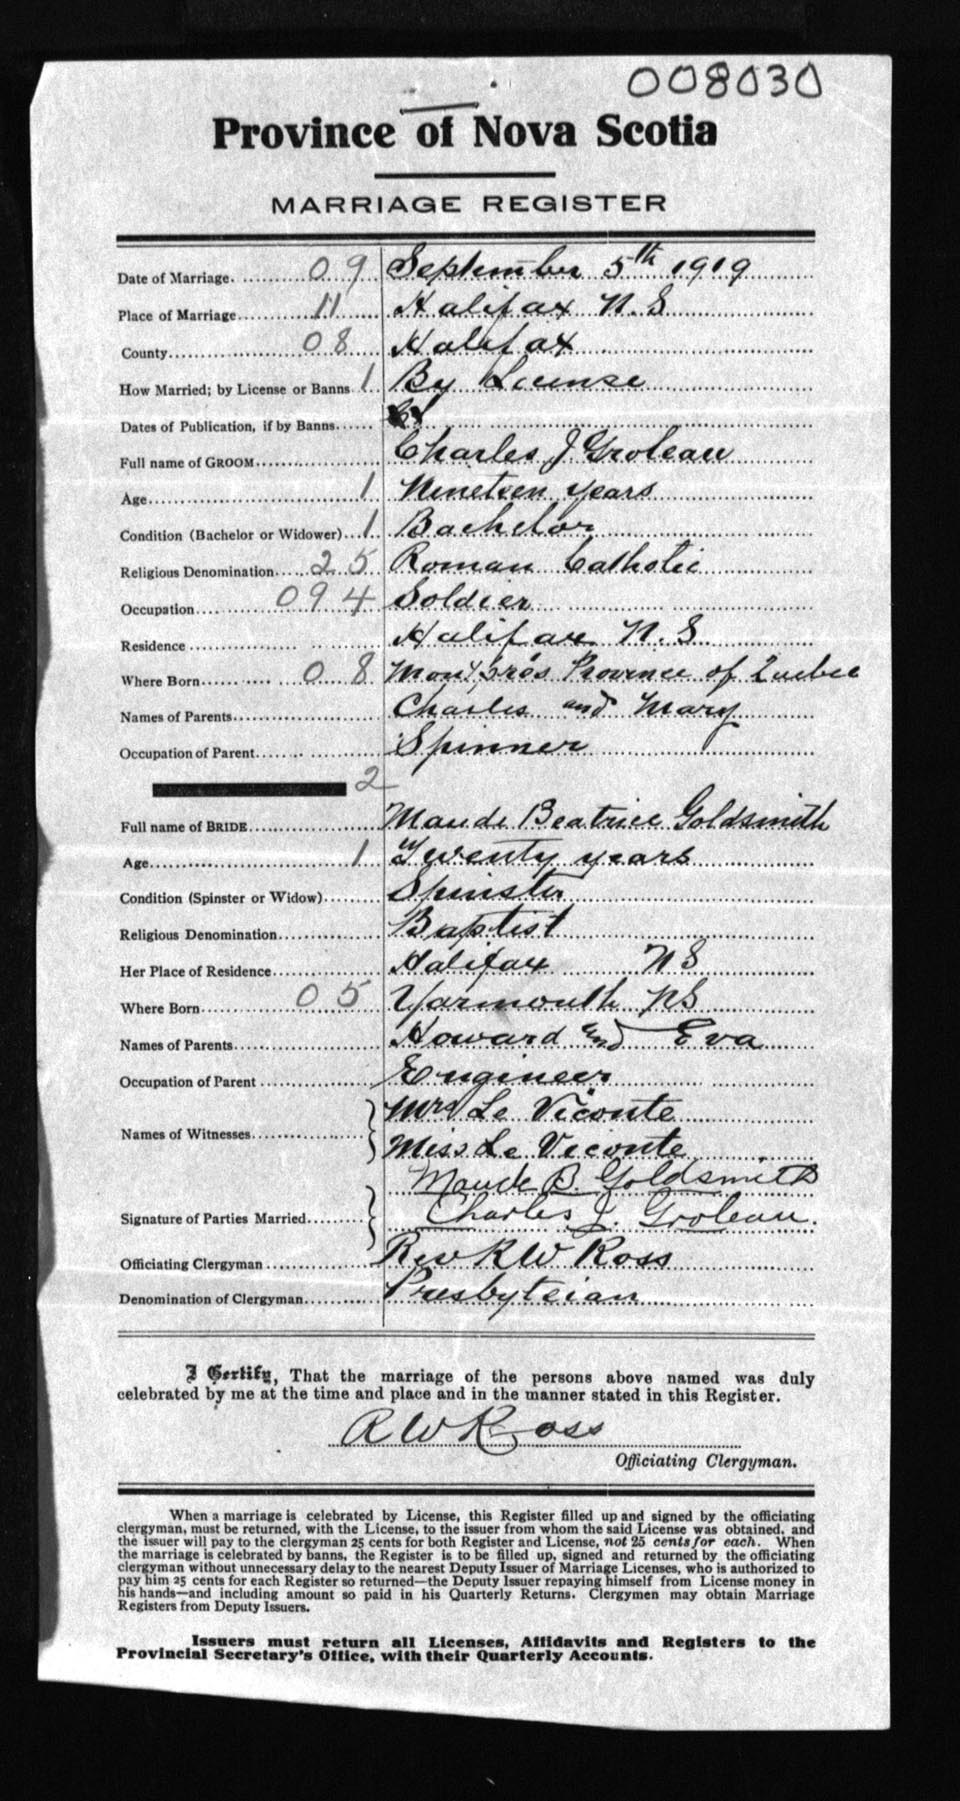 008030
Province of Nova Scotia
MARRIAGE REGISTER
Date of Marriage. 09 September 5th 1919
Place of Marriage 11 Halifax N.S
County 08 Halifax
How Married; by License or Banns 1 By License
Dates of Publication, if by Banns
Full name of GROOM Charles J Groleau
Age 1 Nineteen years
Condition (Bachelor or Widower) 1 Bachelor
Religious Denomination 25 Roman Catholic
Occupation 094 Soldier
Residence Halifax N.S
Where Born 08 Province of Quebec
Names of Parents Charles and Mary
Occupation of Parent Spinner
2
Full name of BRIDE Maude Beatrice Goldsmith
Age 1 Twenty years
Condition (Spinster or Widow) Spinster
Religious Denomination Baptist
Her Place of Residence Halifax NS
Where Born 05 Yarmouth NS
Names of Parents Howard and Eva
Occupation of Parent Engineer
Names of Witnesses Mrs Le Viconte
Miss Le Viconte
Signature of Parties Married Maude B. Goldsmith
Charles J. Groleau.
Officiating Clergyman Rev R W Ross
Denomination of Clergyman Presbyteian
I Certify, That the marriage of the persons above named was duly
celebrated by me at the time and place and in the manner stated in this Register.
R W Ross
Officiating Clergyman.
When a marriage is celebrated by License, this Register filled up and signed by the officiating
clergyman, must be returned, with the License, to the issuer from whom the said License was obtained, and
the issuer will pay to the clergyman 25 cents for both Register and License, not 25 cents for each. When
the marriage is celebrated by banns, the Register is to be filled up, signed and returned by the officiating
clergyman without unnecessary delay to the nearest Deputy Issuer of Marriage Licenses, who is authorized to
pay him 25 cents for each Register so returned—the Deputy Issuer repaying himself from License money in
his hands—and including amount so paid in his Quarterly Returns. Clergymen may obtain Marriage
Registers from Deputy Issuers.
Issuers must return all Licenses, Affidavits and Registers to the
Provincial Secretary's Office, with their Quarterly Accounts.